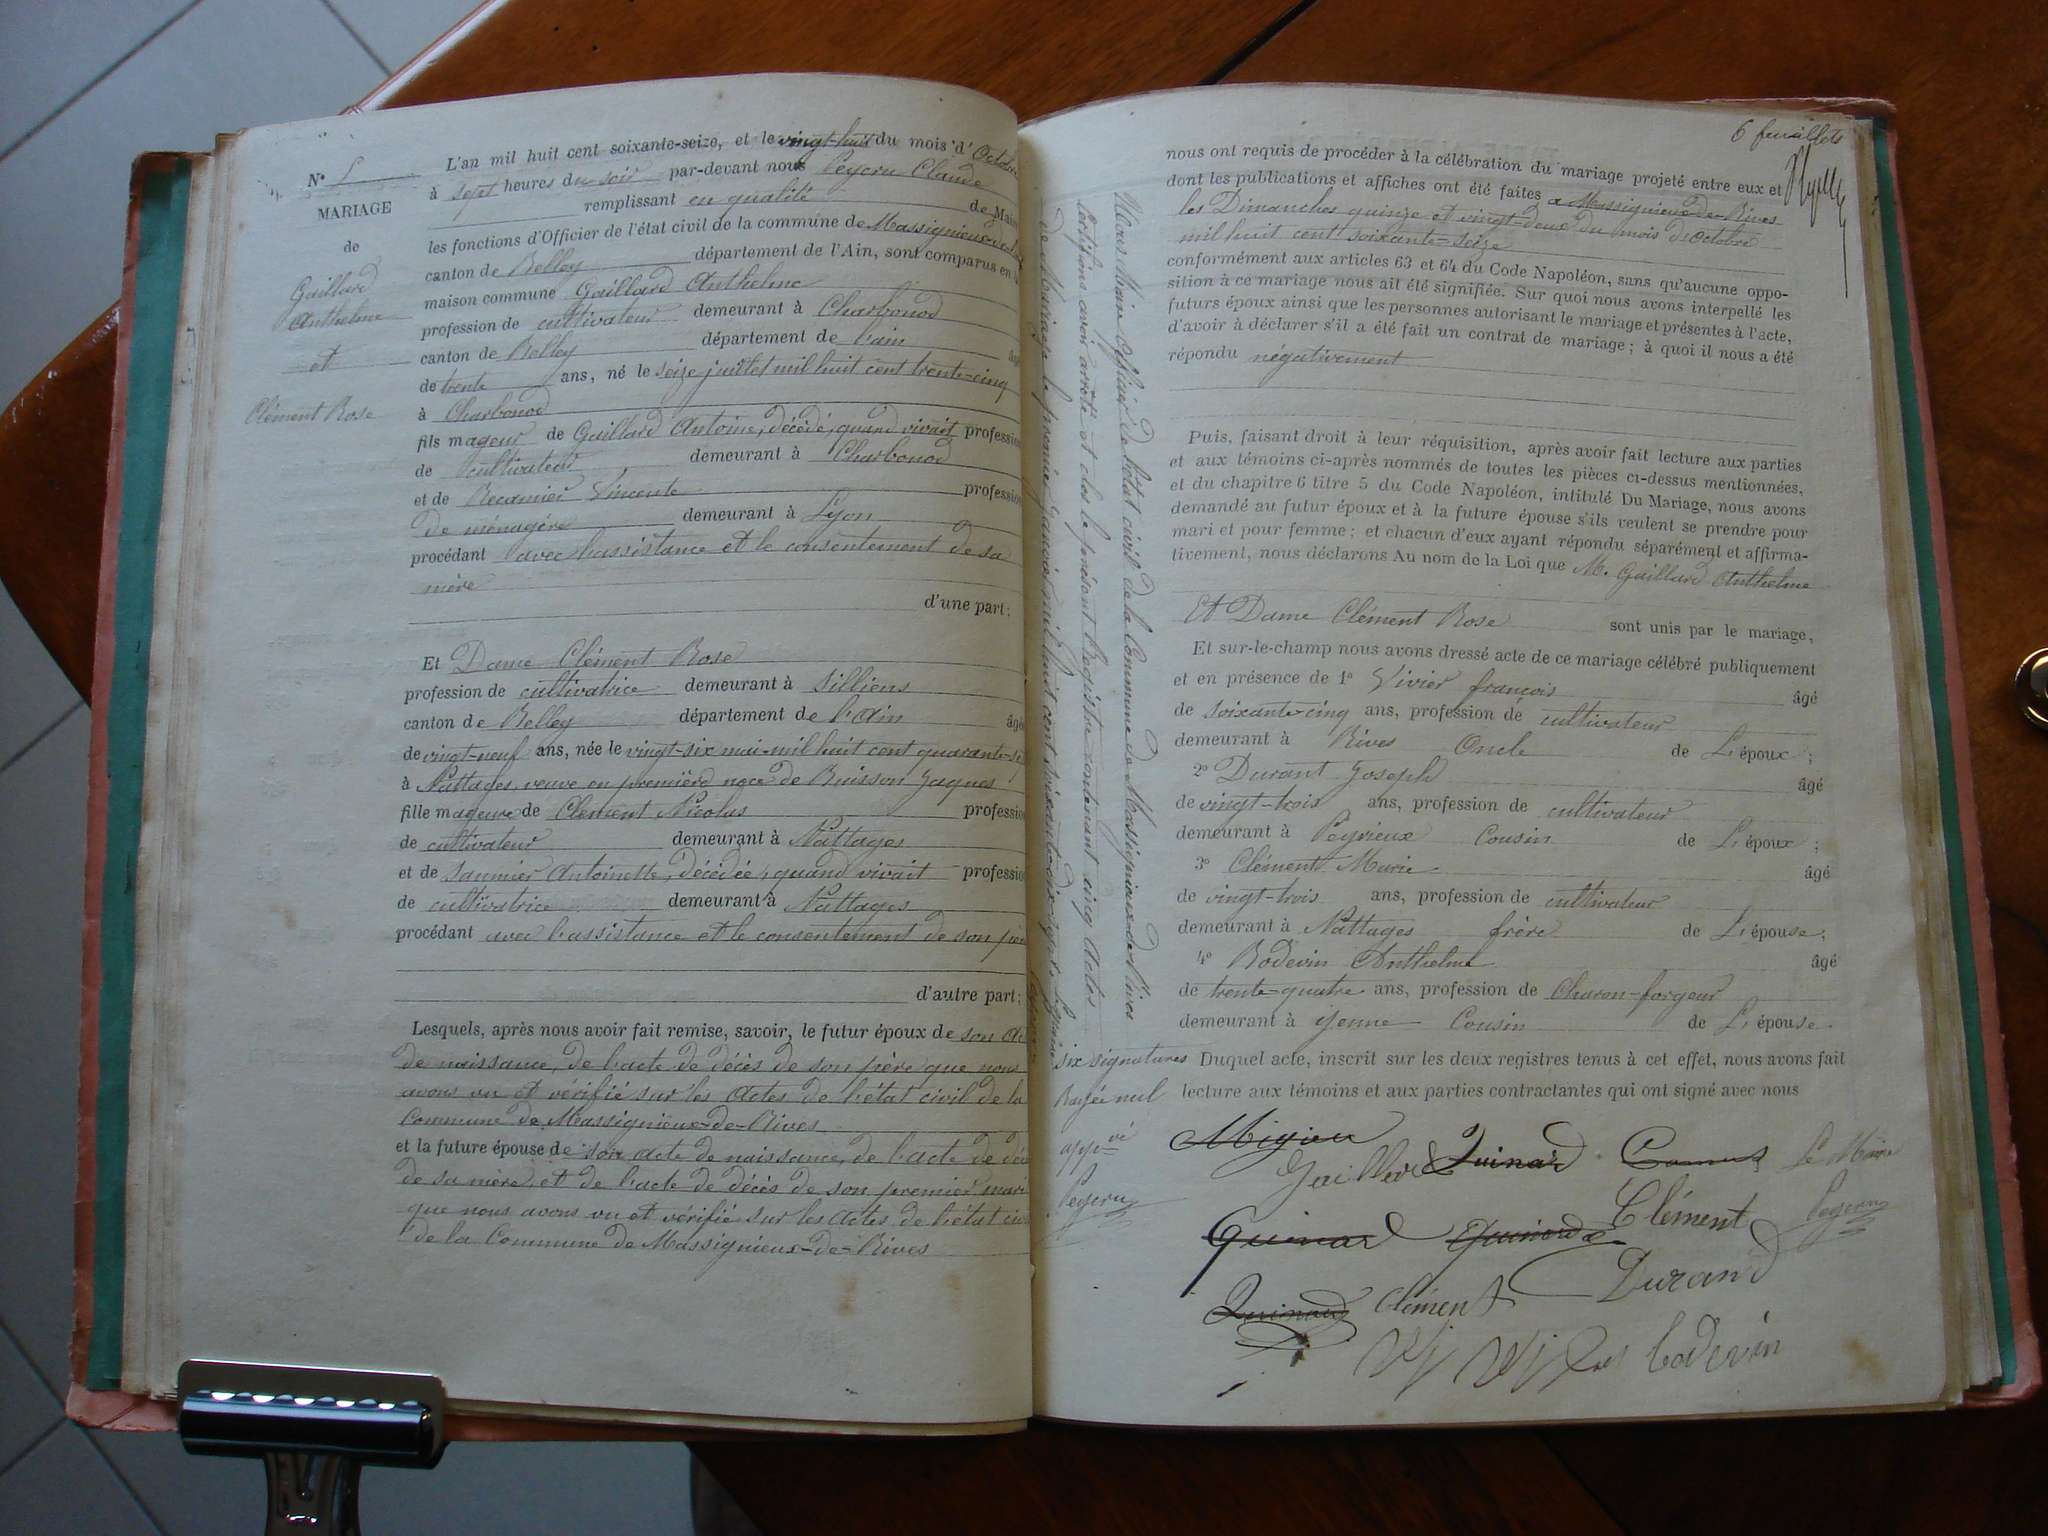 N° 5
MARIAGE
de
Gaillard
Anthelme
et
Clément Rose
L'an mil huit cent soixante-seize, et le vingt-huit du mois d'Octobre
à sept heures du soir par-devant nous Peycru Claude
remplissant en qualité de Maire
les fonctions d'Officier de l'état civil de la commune de Massignieux-de-Rives
canton de Belley département de l'Ain, sont comparus en la
maison commune Gaillard Anthelme
profession de cultivateur demeurant à Charbonod
canton de Belley département de l'ain âgé
de trente ans, né le seize juillet mil huit cent trente-cinq
à Charbonod
fils mageur de Gaillard Antoine, décédé, quand vivait profession
de cultivateur demeurant à Charbonod
et de Recamier Vincente profession
de ménagère demeurant à Lyon
procédant avec l'assistance et le consentement de sa
mère
d'une part;
Et Dame Clément Rose
profession de cultivatrice demeurant à Silliens
canton de Belley département de l'Ain âgée
de vingt-neuf ans, née le vingt-six mai mil huit cent quarante-
à Nattages veuve en première noce de Buisson Jaques
fille mageure de Clément Nicolas profession
de cultivateur demeurant à Nattages
et de Saunier Antoinette, décédée, quand vivait profession
de cultivatrice demeurant à Nattages
procédant avec l'assistance et le consentement de son père
d'autre part;
Lesquels, après nous avoir fait remise, savoir, le futur époux de son
de naissance, de l'acte de décès de son père que nous
avons vu et vérifié sur les Actes de l'état civil de la
Commune de Massignieux-de-Rives
et la future épouse de son acte de naissance, de l'acte de décès
de sa mère, et de l'acte de décès de son premier mari
que nous avons vu et vérifié sur les Actes de l'état civil
de la Commune de Massignieux-de-Rives
6 feuillets
nous ont requis de procéder à la célébration du mariage projeté entre eux et
dont les publications et affiches ont été faites a Massignieux-de-Rives
les Dimanches quinze et vingt-deux du mois d'Octobre
mil huit cent soixante-seize
conformément aux articles 63 et 64 du Code Napoléon, sans qu'aucune oppo-
sition à ce mariage nous ait été signifiée. Sur quoi nous avons interpellé les
futurs époux ainsi que les personnes autorisant le mariage et présentes à l'acte,
d'avoir à déclarer s'il a été fait un contrat de mariage; à quoi il nous a été
répondu négativement
Puis, faisant droit à leur réquisition, après avoir fait lecture aux parties
et aux témoins ci-après nommés de toutes les pièces ci-dessus mentionnées,
et du chapitre 6 titre 5 du Code Napoléon, intitulé Du Mariage, nous avons
demandé au futur époux et à la future épouse s'ils veulent se prendre pour
mari et pour femme; et chacun d'eux ayant répondu séparément et affirma-
tivement, nous déclarons Au nom de la Loi que M. Gaillard Anthelme
Et Dame Clément Rose sont unis par le mariage,
Et sur-le-champ nous avons dressé acte de ce mariage célébré publiquement
et en présence de 1° Vivier françois âgé
de soixante-cinq ans, profession de cultivateur
demeurant à Rives Oncle de L'époux;
2° Durant Joseph âgé
de vingt-trois ans, profession de cultivateur
demeurant à Peyrieux Cousin de L'époux;
3° Clément Marie âgé
de vingt-trois ans, profession de cultivateur
demeurant à Nattages frère de L'épouse;
4° Bodevin Anthelme âgé
de trente-quatre ans, profession de Charon-forgeur
demeurant à Yenne Cousin de L'épouse.
Duquel acte, inscrit sur les deux registres tenus à cet effet, nous avons fait
lecture aux témoins et aux parties contractantes qui ont signé avec nous
six signatures
Rayée nul
appvé
Peycru
Migieu
Gaillard Quinard Camus Le Maire
Quinard Quinard Clément Peycru
Durand
Quinard Clément
bodevin
Nous Maire Officier de l'état civil de la Commune de Massignieux-de-Rives
Certifions avoir arrêté et clos le présent Registre contenant cinq Actes
de Mariage le premier janvier mil huit cent soixante-dix-sept